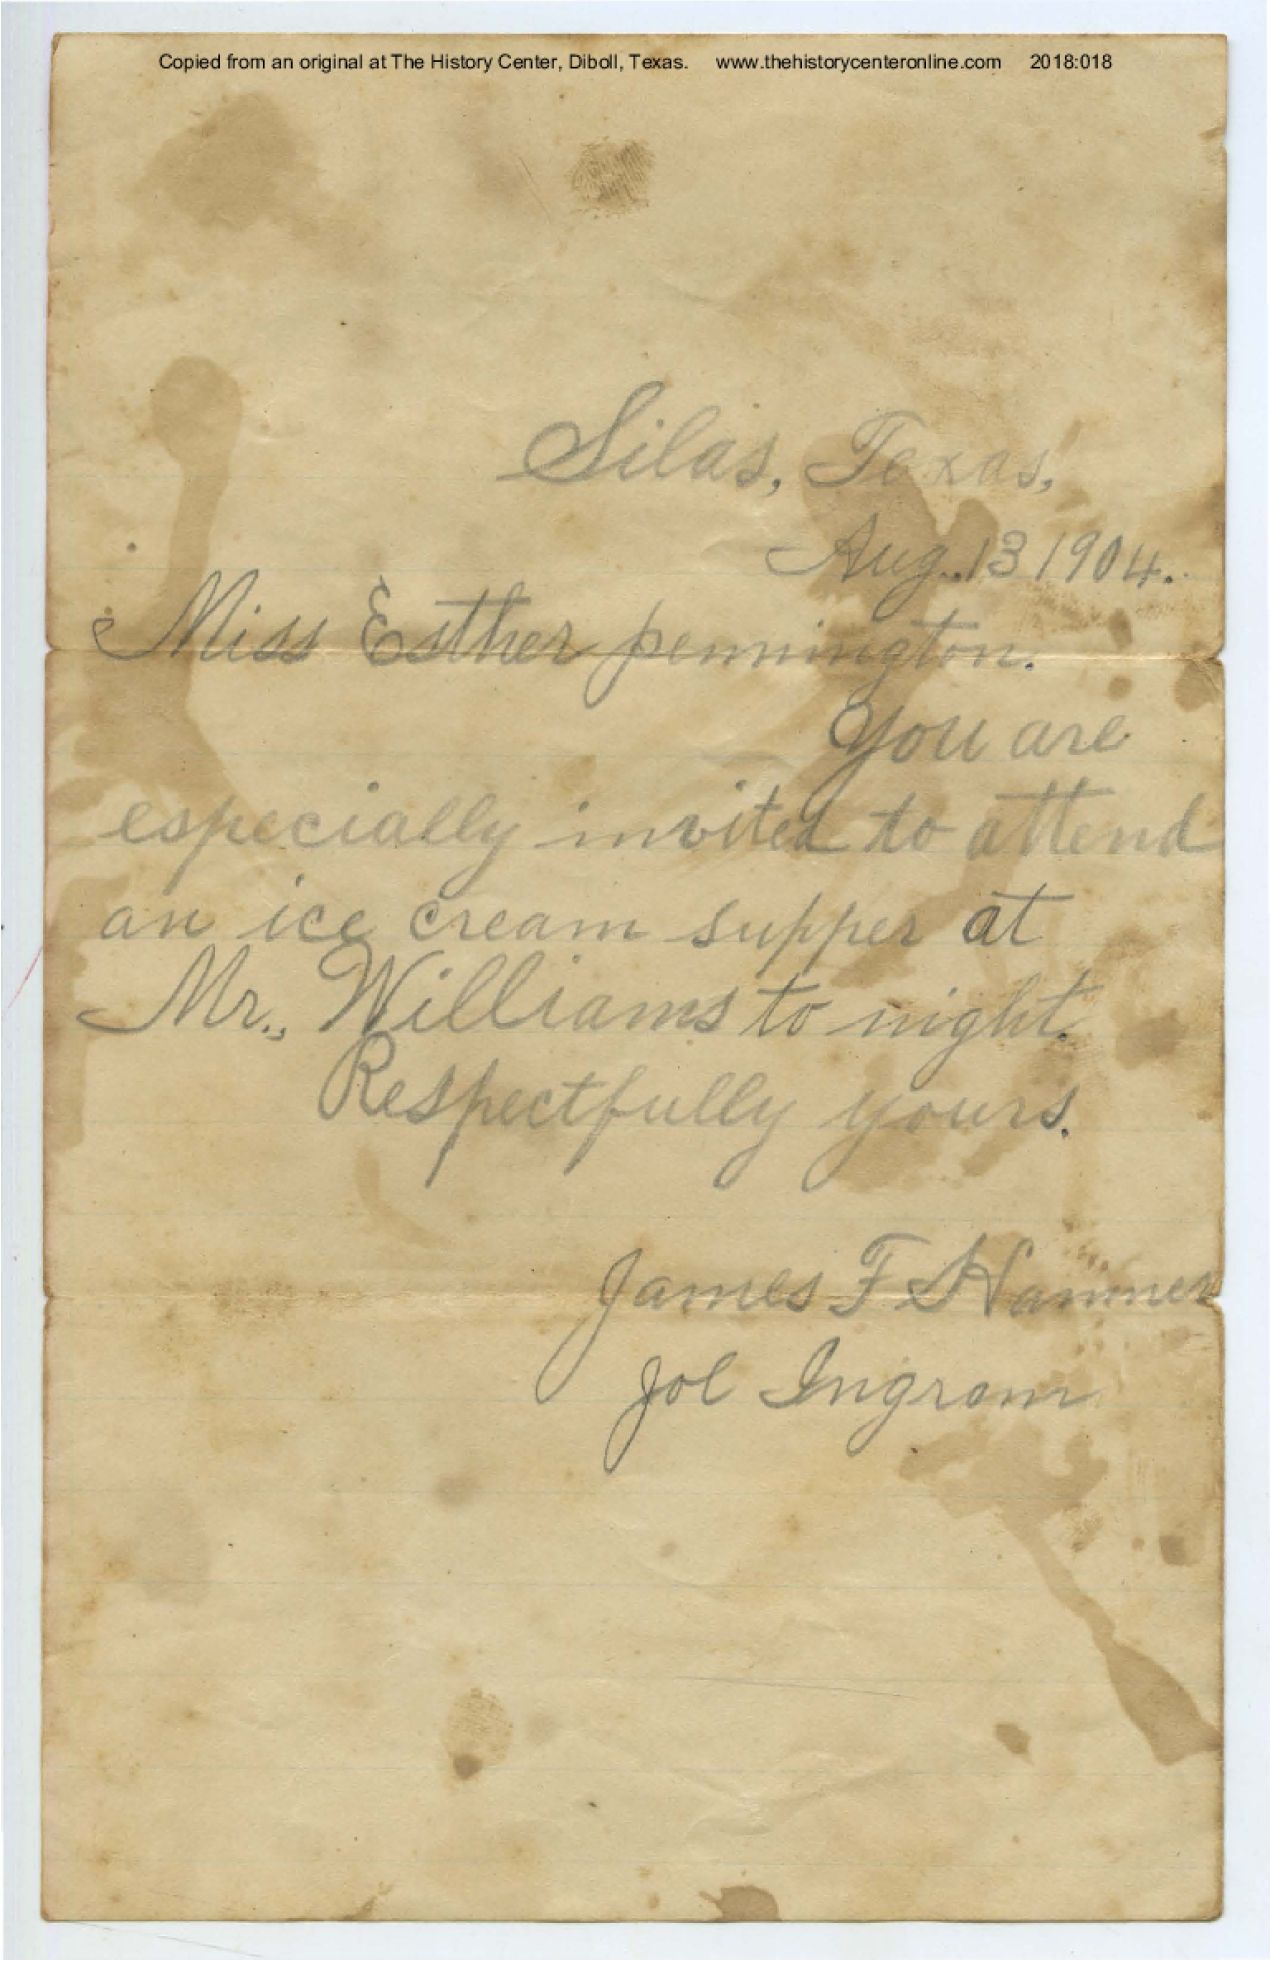 Copied from an original at The History Center, Diboll, Texas. www.thehistorycenteronline.com 2018:018
Silas, Texas,
Aug. 13 1904.
Miss Esther pennington.
You are
especially invited to attend
an ice cream supper at
Mr., Williams to night.
Respectfully yours.
James F Hanner
Joe Ingram